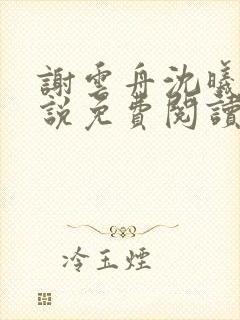 謝雲舟沈曦
說免費閱讀
冷玉煙